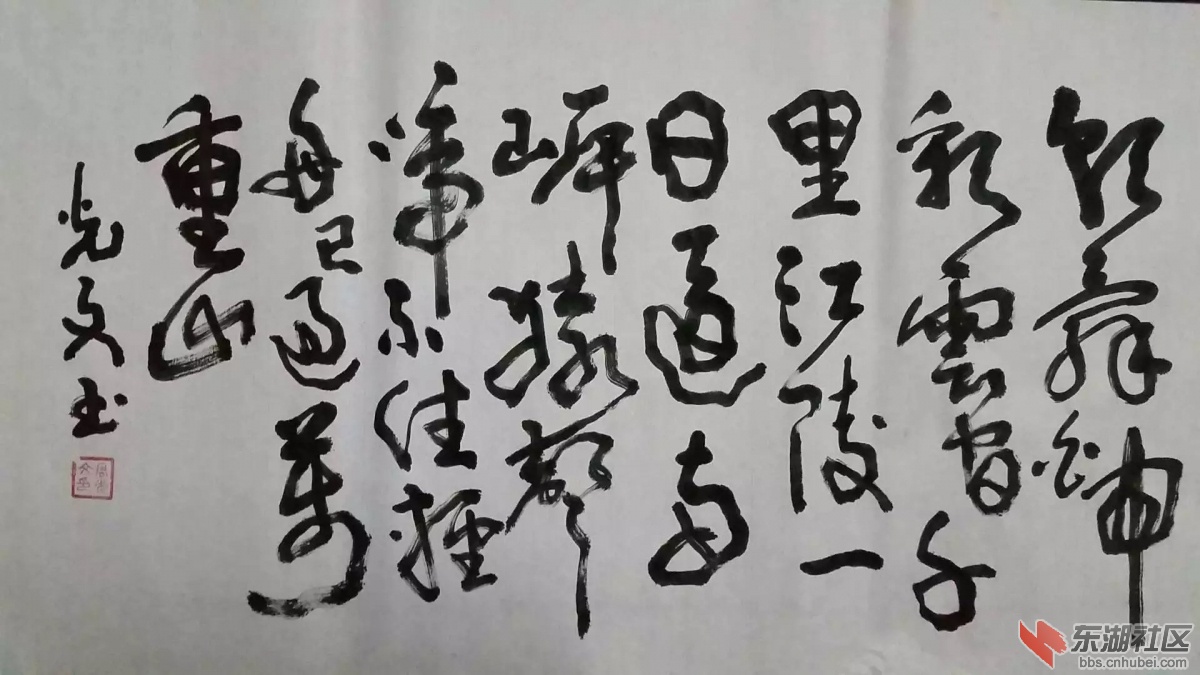 朝辭白帝
彩雲間千
里江陵一
日還兩
岸猿聲
啼不住輕
舟已過萬
重山
光文书
东湖社区
bbs.cnhubei.com